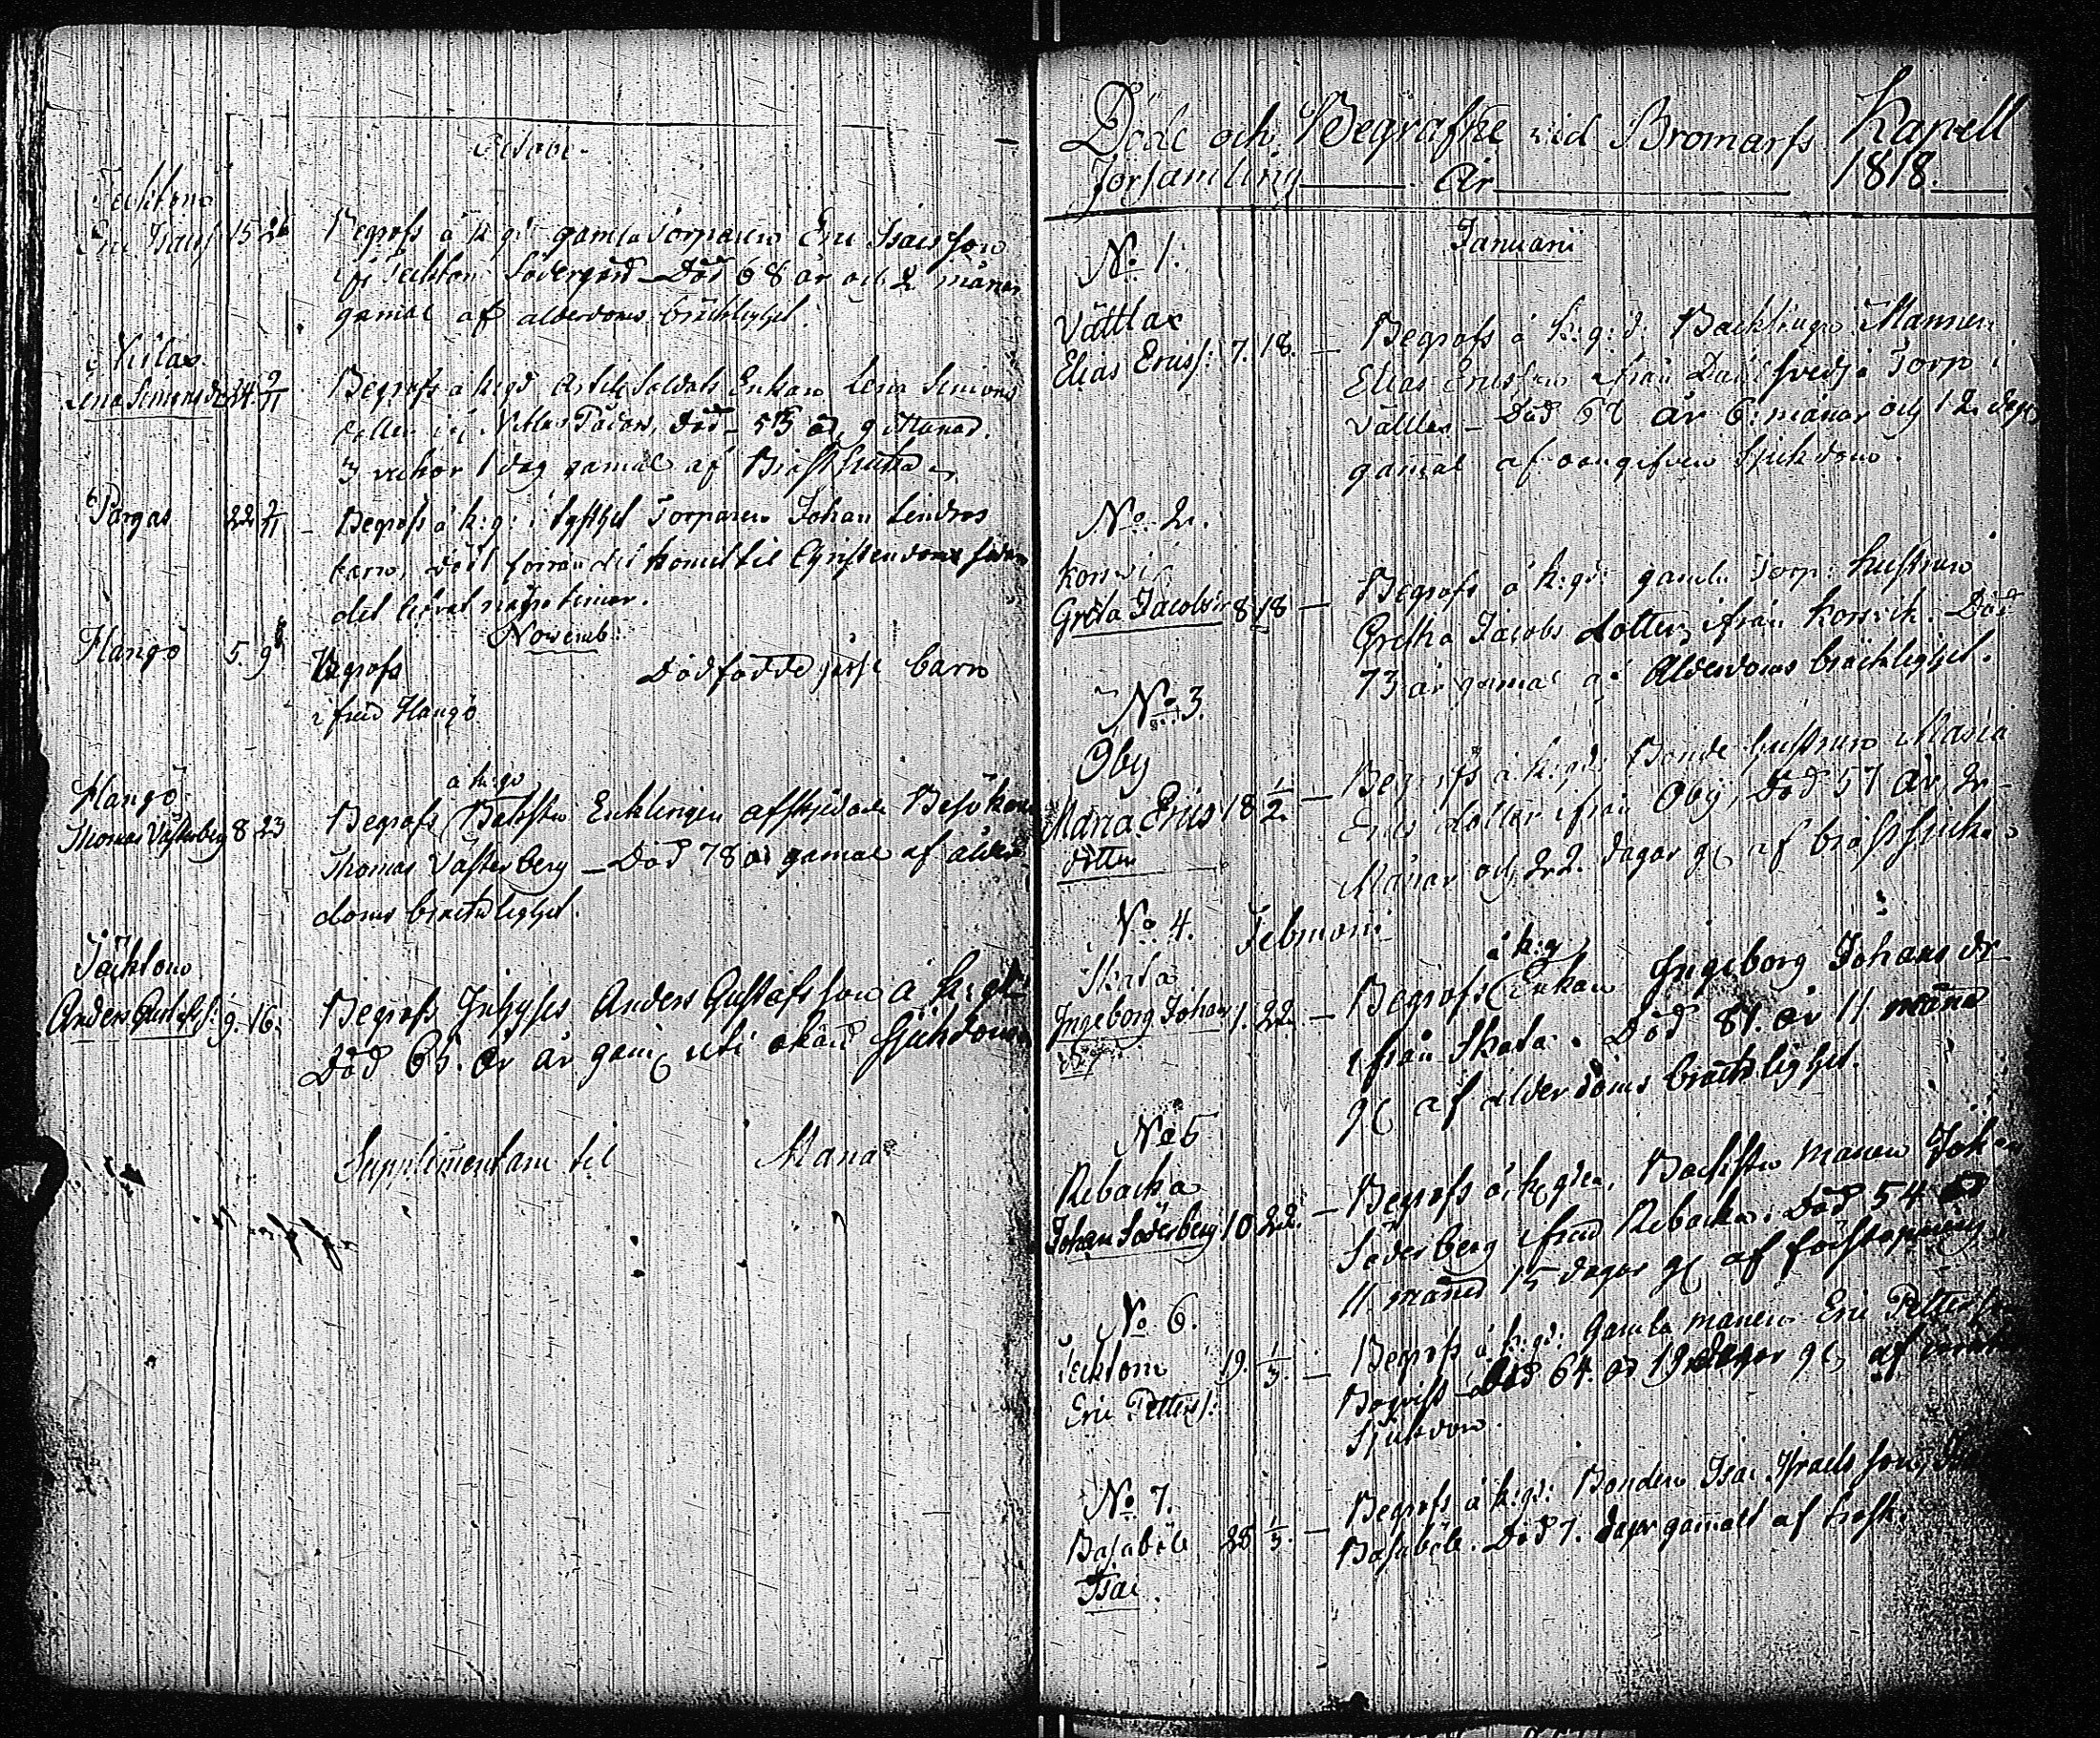 Octobr.
Täcktom
Eric Isacs. 15 26
Begrofs å k:gd gamla Torparen Eric Isacsson
ifr Täcktom Södergård – Död 68 år och 2 månar
gamal af alderdoms bräcklighet.
Vitlax
Lena Simonsdr 24 2/11
Begrofs å k:gd Artill. Soldats Enkan Lena Simons
dotter Död – 55 år, 9 Månad.
3 vickor 1 dag gamal af Bröstsiuka
Pargas 22 2/11
Begrofs å k:g: Torparen Johan Lindros
barn, dödt förrän det kommit til Christendom sedan
det lefvat några timar.
Novemb:
Hangö 5. 9
Begrofs Dödfödde barn
ifrån Hangö
Hangö
Thomas Västerberg 8 23
å k:gd
Begrofs Enklingen afskjedade Besökaren
Thomas Västerberg – Död 78 år gamal af ålder
doms bräcklighet.
Täcktom
Anders Gustafs: 9. 16.
Begrofs Inhyses Anders Gustafsson å k:gd
Död 65. år gam; uti okänd Sjukdom
Supplimentam til Mana
Döde och Begrafne vid Bromarfs Kapell
Församling År 1818.
Januari
No 1.
Vättlax
Elias Erics: 7. 18. –
Begrofs å k:g:d: Backstugu Mannen
Elias Ericsson ifrån Dahlsvedja Torp i
Vättlax – Död 6: månar och 12 dagar
gamal af oangifven Sjukdom.
No 2.
Korsvik
Greta Jacobsdr 8 18 –
Begrofs å k:gd: gamla Torp: hustrun
Gretha Jacobs dotter, ifrån Korsvik. Död
73 år gamal af Alderdoms bräcklighet.
No 3.
Öby
Maria Erics 18 1/2. –
dotter
Begrofs å k:gd: Bonde hustrun Maria
Erics dotter ifrån Öby, Död 57 År, 2
Månar och 22. dagar gl af bröstsjuka
No 4. Februari
Skata
Ingeborg Johans 1. 22. –
dr
å k:g
Begrofs Enkan Ingeborg Johans dr
ifrån Skata. Död 81. år 11 månad
gl af alderdoms bräcklighet.
No 5
Rebacka
Johan Söderberg 10 22. –
Begrofs å k:gden. Backstu manen Johan
Söderberg ifrån Rebacka. Död 54 år
11 månad 15 dagar gl af förstoppning
No 6.
Täcktom 19. 1/3. –
Eric Petters:
Begrofs å k:gd: Gamla manen Eric Petterson
Död 64. år 19 dagar gl, af
Sjukdom.
No 7.
Basaböle 25 1/3. –
Isac.
Begrofs å k:gd: Bonden Isac Israelsson,
Basaböle. Död 7. dagar gamalt af